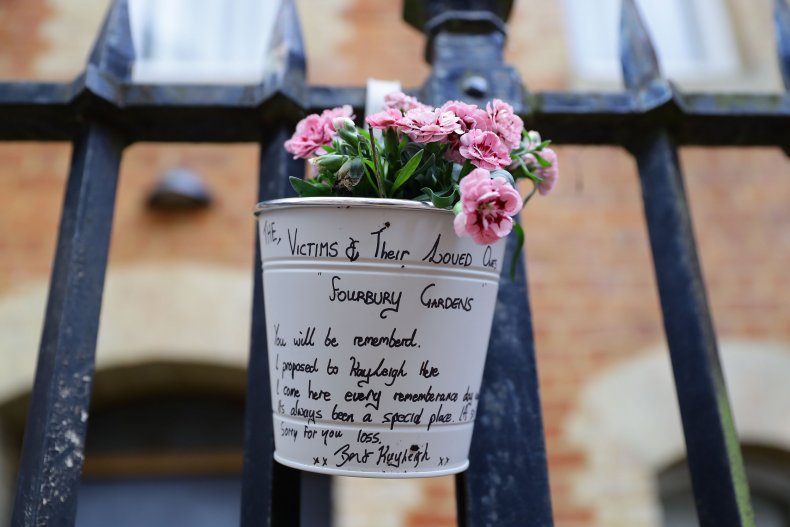 THE, VICTIMS & Their LOVED ONES
"FOURBURY GARDENS"
You will be rememberd.
I proposed to Kayleigh Here
I come here every rememberence day
its always been a special place.
Sorry for you loss.
xx Ben & Kayleigh xx